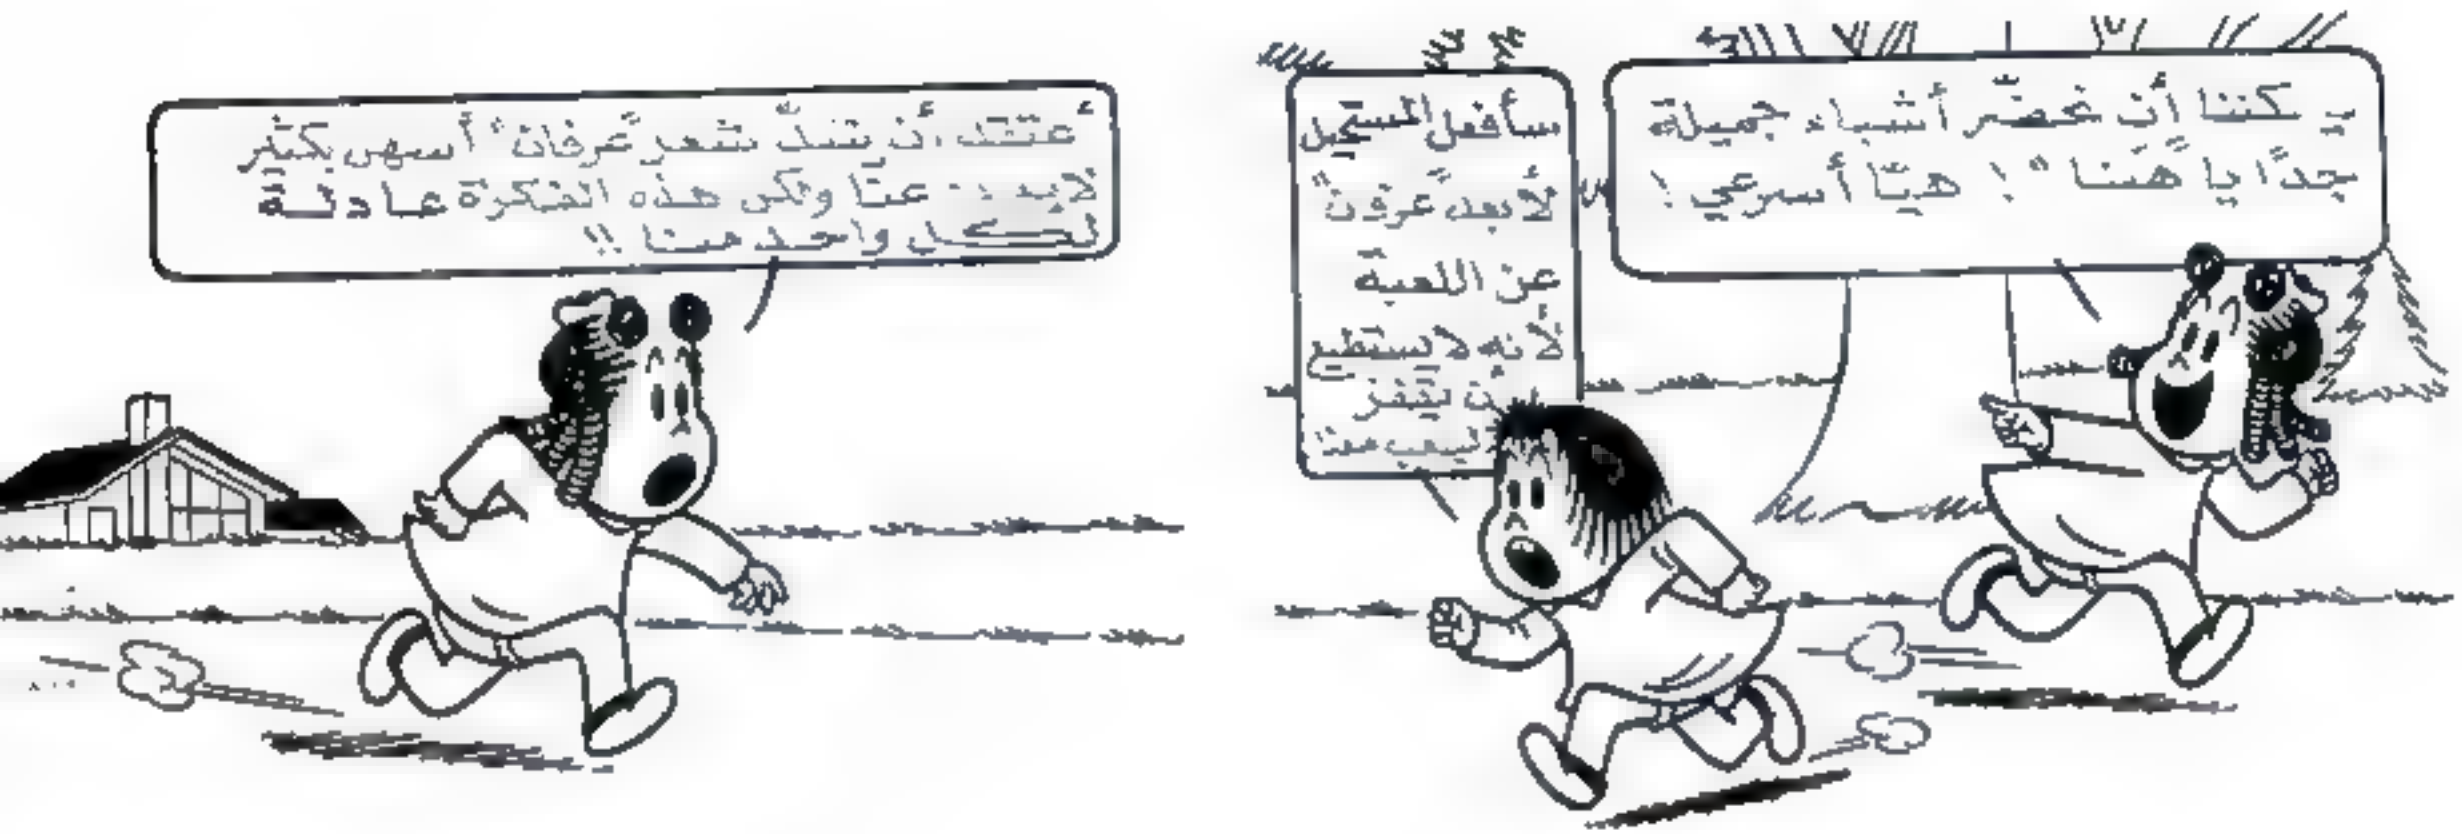 يمكننا أن نحضّر أشياء جميلة
جدًا يا "هَنا"! هيّا أسرعي!
سأفعل المستحيل
لأبعد "عرفان"
عن اللعبة
لأنه لا يستطيع
أن يقفز
ليلعب معنا
أعتقد أن شعر "عرفان" أسهى بكثير
لابد عنا ولكن هذه الفكرة عادلة
لكل واحد منا !!